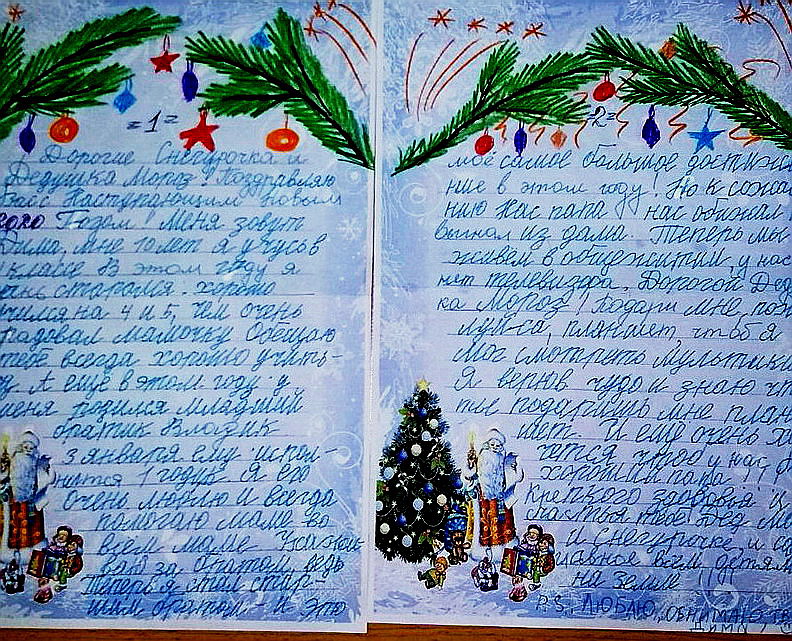 =1=
Дорогие Снегурочка и
Дедушка Мороз! Поздравляю
Васс Наступающим Новым
Годом! Меня зовут
Дима, мне 10 лет я учусь в
классе В этом году я
старался. хорошо
учился на 4 и 5, чем очень
радовал мамочку Обещаю
тебе всегда хорошо учить-
А еще в этом году у
меня родился младший
братик Владик
3 января ему испол-
нится 1 годик я его
очень люблю и всегда
помогаю маме во
всём маме Ухажи-
ваю за братом, ведь
Теперь я стал стар-
шим братом - и это
=2=
моё самое большое достиже
ние в этом году! Но к сожа
нию Нас папа нас обижал
выгнал из дома. Теперь мы
живём в общежитии, у нас
нет телевизора, Дорогой Дед
ка Мороз! Подари мне, пож
луйса, планшет, чтоб я
мог смотреть мультики
Я верю в чудо и знаю чт
ты подаришь мне план
шет. И ещё очень х
чется чтоб у нас
хороший папа!
крепкого здоровья и
счастья тебе Дед Мо
и Снегурочке, и са
главное всем детям
на земле
P.S. ЛЮБЛЮ, ОБНИМАЮ, ТВ
ДИМА